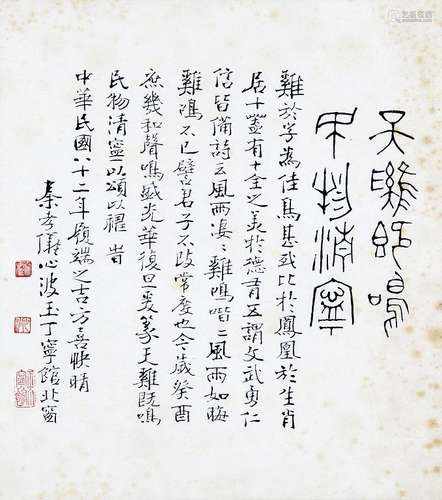 天雞既鳴
民物清寧
雞於字為佳鳥甚或比於鳳凰於生肖
居十葢有十全之美於德有五謂文武勇仁
信皆備詩云風雨淒〻雞鳴喈〻風雨如晦
雞鳴不已譬君子不改常度也今歲癸酉
庶幾和聲鳴盛光華復旦爰篆天雞既鳴
民物清寧以頌以禱旹
中華民國八十二年履端之吉方喜快晴
秦孝儀心波玉丁寧館北窗